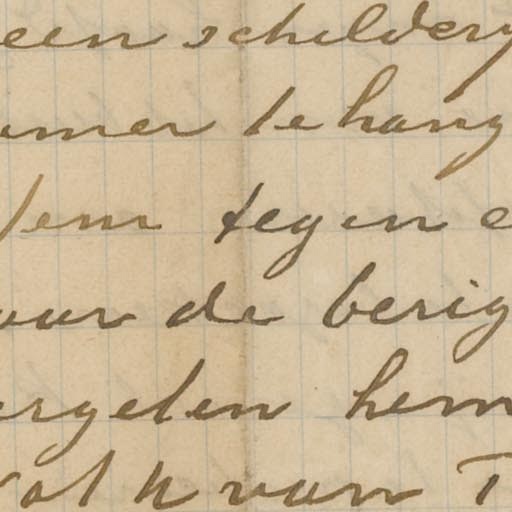 een schildery
amer te hang
Jem tegen e
uur de berig
ergeten hem
Tot U van